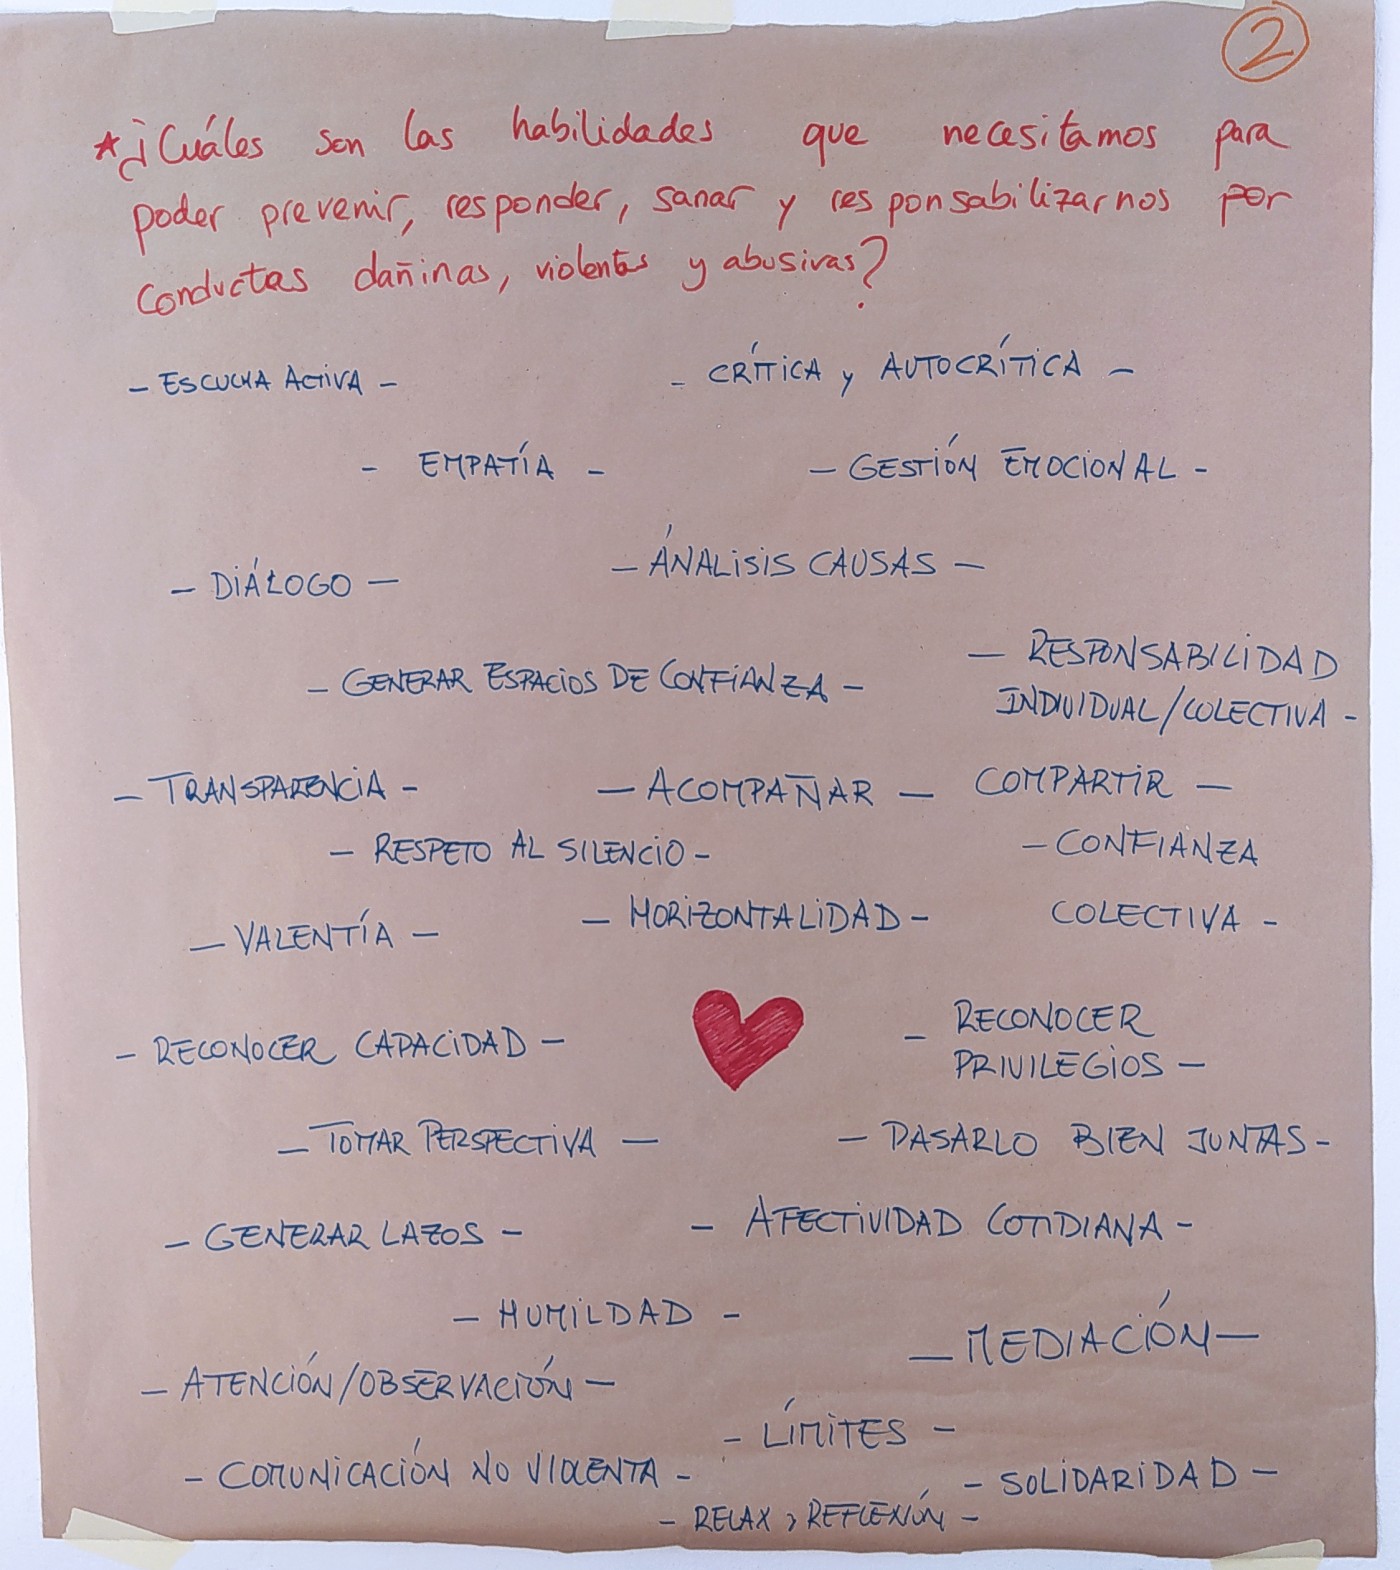 2
* ¿Cuáles son las habilidades que necesitamos para
poder prevenir, responder, sanar y responsabilizarnos por
conductas dañinas, violentas y abusivas?
- ESCUCHA ACTIVA -
- CRÍTICA y AUTOCRÍTICA -
- EMPATÍA -
- GESTIÓN EMOCIONAL -
- DIÁLOGO -
- ÁNALISIS CAUSAS -
- GENERAR ESPACIOS DE CONFIANZA -
- RESPONSABILIDAD
INDIVIDUAL/COLECTIVA -
- TRANSPARENCIA -
- ACOMPAÑAR -
COMPARTIR -
- RESPETO AL SILENCIO -
- CONFIANZA
COLECTIVA -
- VALENTÍA -
- HORIZONTALIDAD -
- RECONOCER CAPACIDAD -
- RECONOCER
PRIVILEGIOS -
- TOMAR PERSPECTIVA -
- PASARLO BIEN JUNTAS -
- GENERAR LAZOS -
- AFECTIVIDAD COTIDIANA -
- HUMILDAD -
- MEDIACIÓN -
- ATENCIÓN/OBSERVACIÓN -
- LÍMITES -
- COMUNICACIÓN NO VIOLENTA -
- SOLIDARIDAD -
- RELAX y REFLEXIÓN -